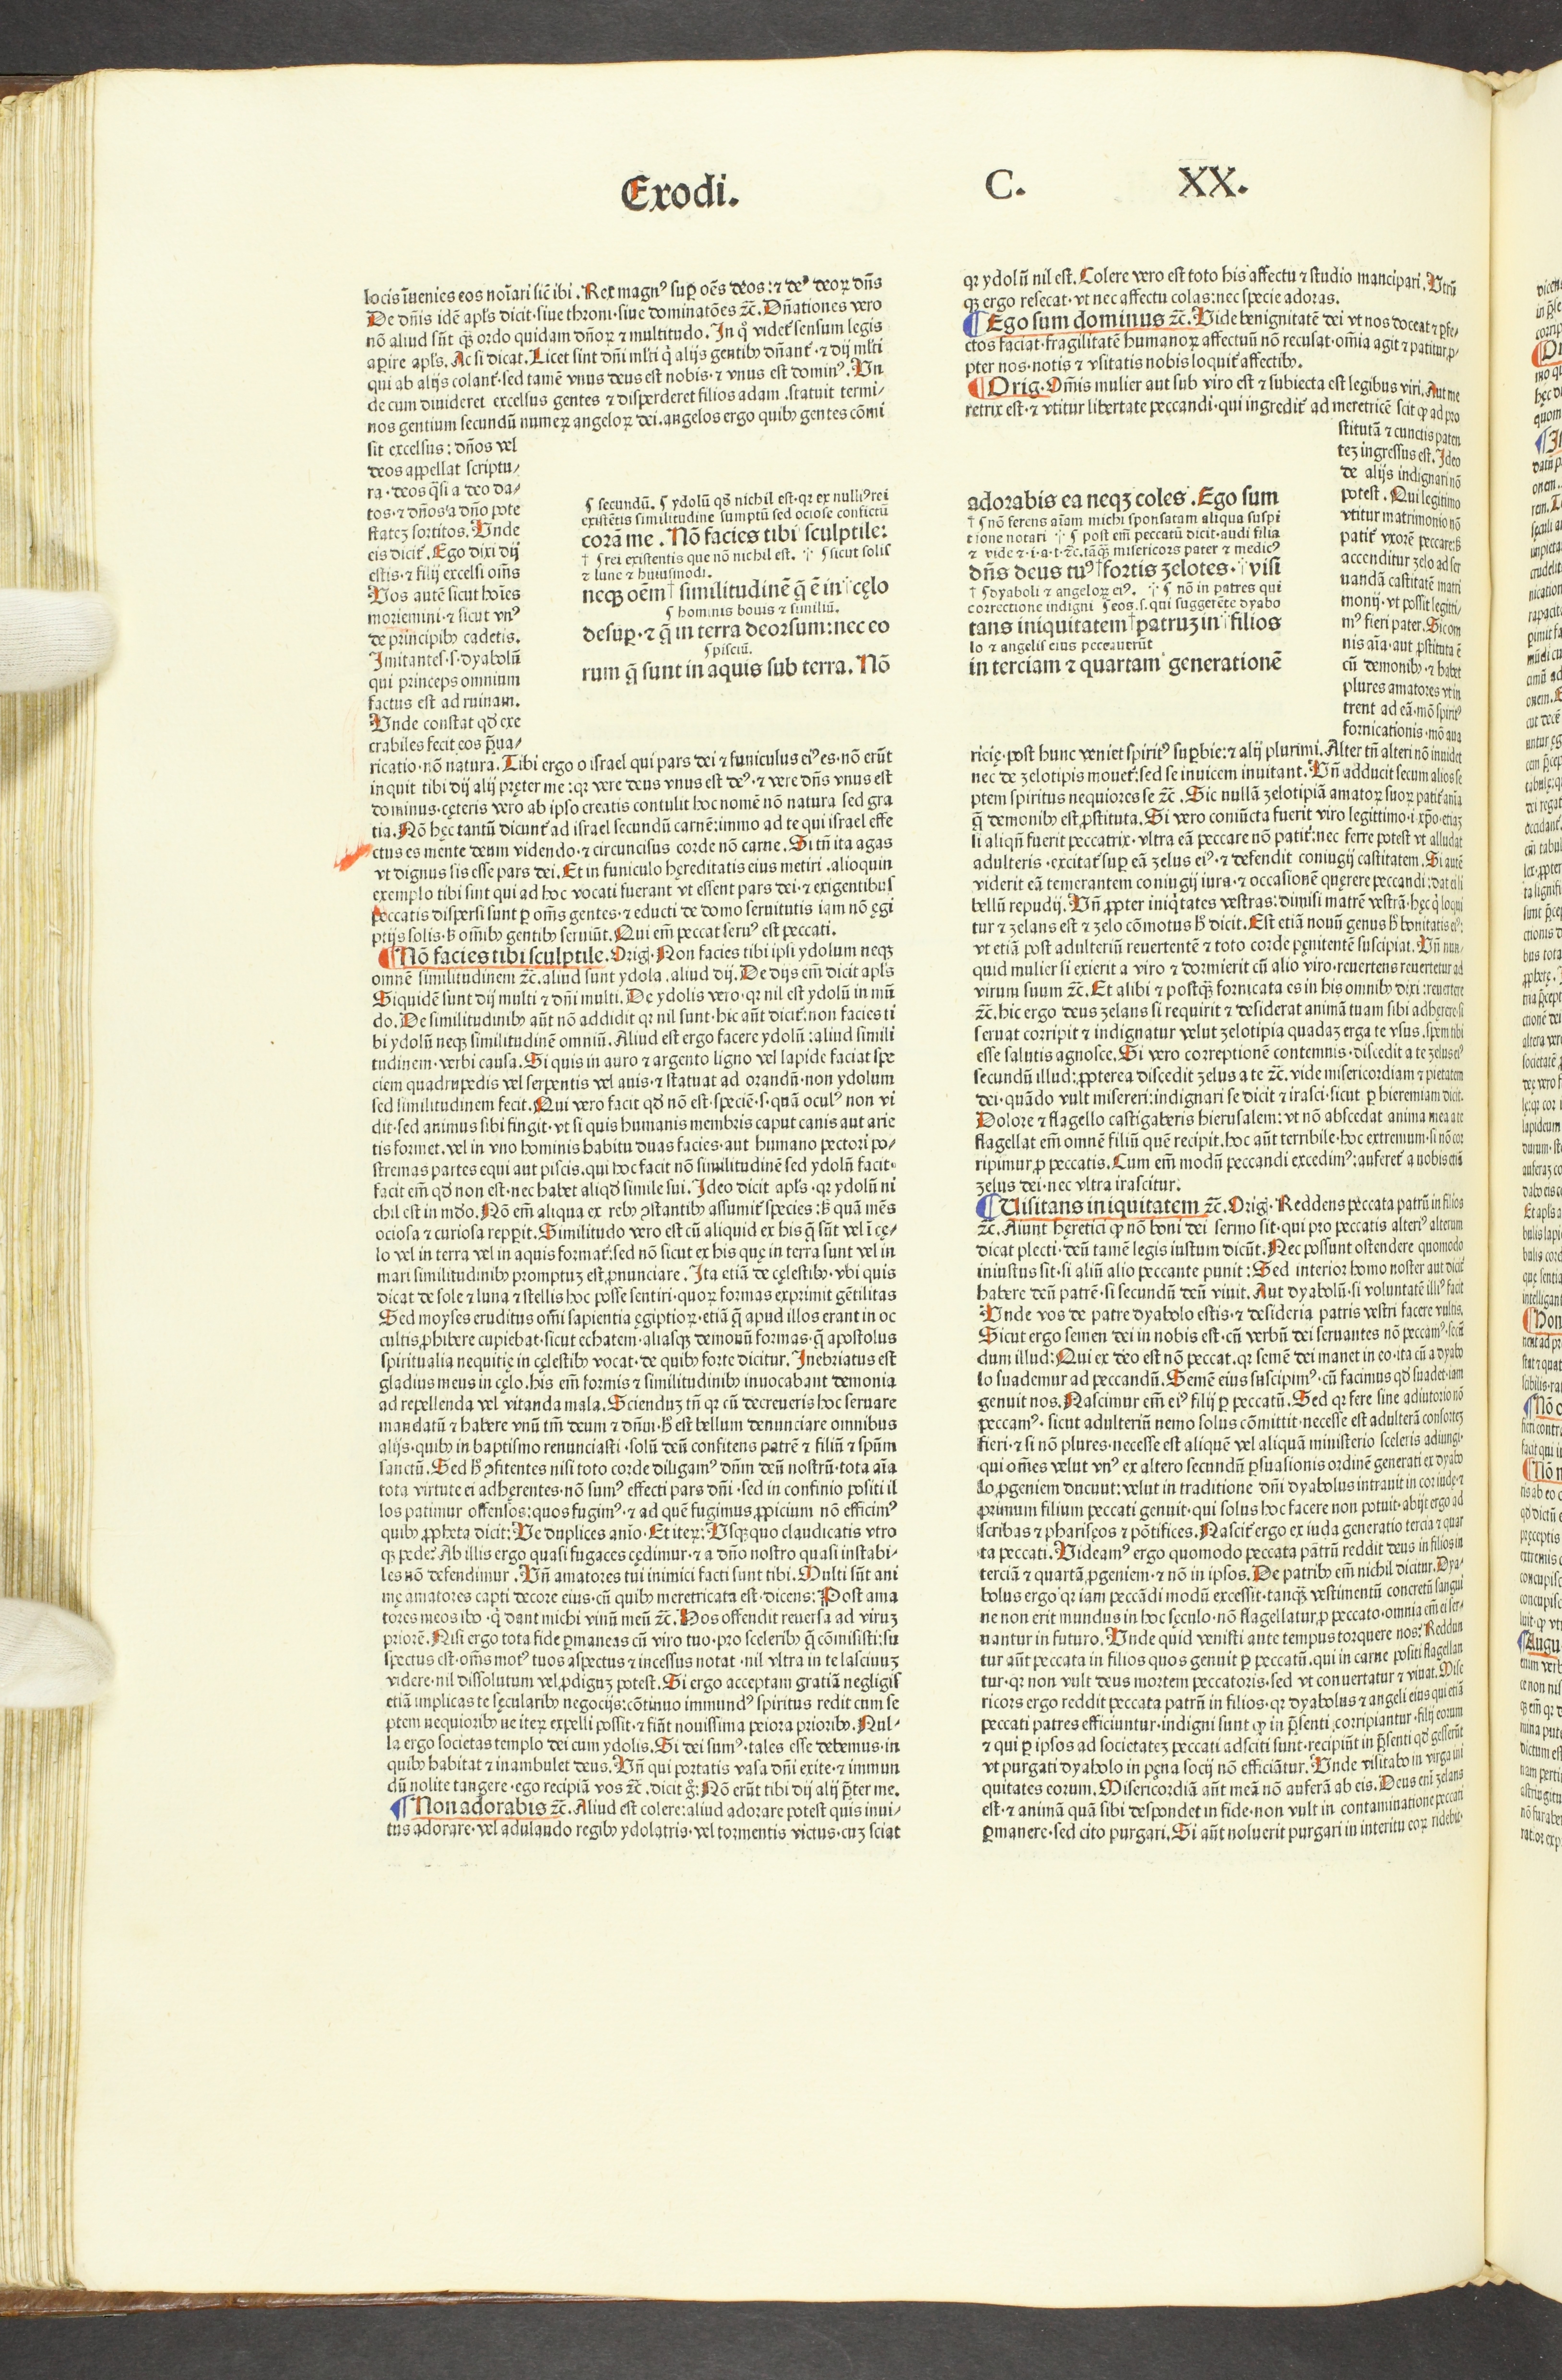 Exodi. C. XX.
locis īuenies eos noīari sic̄ ibi. Rex magnꝰ suꝑ oēs deos: ⁊ deꝰ deoꝝ dn̄s
De dn̄is idē apl̄s dicit · siue throni · siue dominatōes ⁊c̄. Dn̄ationes vero
nō aliud sūt qꝫ ordo quidam dn̄oꝝ ⁊ multitudo. In qͦ videt᷑ sensum legis
aꝑire apl̄s. Ac si dicat. Licet sint dn̄i ml̄ti qͥ alijs gentibꝰ dn̄ant᷑ · ⁊ dij ml̄ti
qui ab alijs colant᷑ · sed tamē vnus deus est nobis · ⁊ vnus est dominꝰ. Vn
de cum diuideret excelsus gentes ⁊ disperderet filios adam . statuit termi⸗
nos gentium secundū numeꝝ angeloꝝ dei. angelos ergo quibꝰ gentes cōmi
sit excelsus: dn̄os vel
deos appellat scriptu⸗
ra · deos qͣsi a deo da⸗
tos · ⁊ dn̄os a dn̄o pote
statez sortitos. Vnde
eis dicit᷑. Ego dixi dij
estis · ⁊ filij excelsi om̄s
Vos autē sicut hoīes
moriemini · ⁊ sicut vnꝰ
de principibꝰ cadetis.
Imitantes · s · dyabolū
qui princeps omnium
factus est ad ruinam.
Vnde constat qd̄ exe
crabiles fecit eos p̄ua⸗
ricatio · nō natura. Tibi ergo o israel qui pars dei ⁊ funiculus eiꝰ es · nō erūt
inquit tibi dij alij pręter me : qꝛ vere deus vnus est deꝰ · ⁊ vere dn̄s vnus est
dominus · cęteris vero ab ipso creatis contulit hoc nomē nō natura sed gra
tia. Nō hęc tantū dicunt᷑ ad israel secundū carnē: immo ad te qui israel effe
ctus es mente deum videndo · ⁊ circuncisus corde nō carne. Si tn̄ ita agas
vt dignus sis esse pars dei. Et in funiculo hęreditatis eius metiri . alioquin
exemplo tibi sint qui ad hoc vocati fuerant vt essent pars dei · ⁊ exigentibus
peccatis dispersi sunt ꝑ om̄s gentes · ⁊ educti de domo seruitutis iam nō ęgi
ptijs solis · sꝫ om̄ibꝰ gentibꝰ seruiūt. Qui em̄ peccat seruꝰ est peccati.
¶ Nō facies tibi sculptile. Orig. Non facies tibi ipsi ydolum neqꝫ
omnē similitudinem ⁊c̄. aliud sunt ydola . aliud dij. De dijs em̄ dicit apl̄s
Siquidē sunt dij multi ⁊ dn̄i multi. De ydolis vero · qꝛ nil est ydolū in mū
do. De similitudinibꝰ aūt nō addidit qꝛ nil sunt · hic aūt dicit᷑: non facies ti
bi ydolū neqꝫ similitudinē omniū. Aliud est ergo facere ydolū : aliud simili
tudinem · verbi causa. Si quis in auro ⁊ argento ligno vel lapide faciat spe
ciem quadrupedis vel serpentis vel auis · ⁊ statuat ad orandū · non ydolum
sed similitudinem fecit. Qui vero facit qd̄ nō est · speciē · s · quā oculꝰ non vi
dit · sed animus sibi fingit · vt si quis humanis membris caput canis aut arie
tis formet. vel in vno hominis habitu duas facies · aut humano pectori po⸗
stremas partes equi aut piscis. qui hoc facit nō similitudinē sed ydolū facit·
facit em̄ qd̄ non est · nec habet aliqd̄ simile sui. Ideo dicit apl̄s · qꝛ ydolū ni
chil est in mūdo. Nō em̄ aliqua ex rebꝰ ꝯstantibꝰ assumit᷑ species : sꝫ quā mēs
ociosa ⁊ curiosa repperit. Similitudo vero est cū aliquid ex his q̄ sūt vel ī cę⸗
lo vel in terra vel in aquis format᷑: sed nō sicut ex his quę in terra sunt vel in
mari similitudinibꝰ promptuz est ꝓnunciare. Ita etiā de cęlestibꝰ · vbi quis
dicat de sole ⁊ luna ⁊ stellis hoc posse sentiri · quoꝝ formas exprimit gētilitas
Sed moyses eruditus om̄i sapientia ęgiptioꝝ · etiā q̄ apud illos erant in oc
cultis ꝓhibere cupiebat · sicut echatem · aliasqꝫ demonū formas · q̄ apostolus
spiritualia nequitię in cęlestibꝰ vocat · de quibꝰ forte dicitur. Inebriatus est
gladius meus in cęlo. his em̄ formis ⁊ similitudinibꝰ inuocabant demonia
ad repellenda vel vitanda mala. Scienduz tn̄ qꝛ cū decreueris hoc seruare
mandatū ⁊ habere vnū tm̄ deum ⁊ dn̄m · hꝭ est bellum denunciare omnibus
alijs · quibꝰ in baptismo renunciasti · solū deū confitens patrē ⁊ filiū ⁊ spūm
sanctū. Sed hꝭ ꝯfitentes nisi toto corde diligamꝰ dn̄m deū nostrū · tota aīa
tota virtute ei adhęrentes · nō sumꝰ effecti pars dn̄i · sed in confinio positi il
los patimur offensos: quos fugimꝰ · ⁊ ad quē fugimus ꝓpicium nō efficimꝰ
quibꝰ ꝓpheta dicit: Ve duplices anio · Et iteꝝ: Vsqꝫ quo claudicatis vtro
qꝫ pede? Ab illis ergo quasi fugaces cędimur · ⁊ a dn̄o nostro quasi instabi⸗
les nō defendimur . Vn̄ amatores tui inimici facti sunt tibi. Multi sūt ani
mę amatores capti decore eius · cū quibꝰ meretricata est · dicens: Post ama
tores meos ibo · qͥ dant michi vinū meū ⁊c̄. Hos offendit reuersa ad viruz
priorē. Nisi ergo tota fide ꝑmaneas cū viro tuo · pro sceleribꝰ q̄ cōmisisti: su
spectus est · om̄s motꝰ tuos aspectus ⁊ incessus notat · nil vltra in te lasciuuz
videre · nil dissolutum vel ꝓdiguz potest. Si ergo acceptam gratiā negligis
etiā implicas te sęcularibꝰ negocijs: cōtinuo immundꝰ spiritus redit cum se
ptem nequioribꝰ ne iteꝝ expelli possit · ⁊ fiūt nouissima peiora prioribꝰ. Nul⸗
la ergo societas templo dei cum ydolis. Si dei sumꝰ · tales esse debemus · in
quibꝰ habitat ⁊ inambulet deus. Vn̄ qui portatis vasa dn̄i exite · ⁊ immun
dū nolite tangere · ego recipiā vos ⁊c̄. dicit gͦ: Nō erūt tibi dij alij p̄ter me.
¶ Non adorabis ⁊c̄. Aliud est colere: aliud adorare potest quis inui⸗
tus adorare · vel adulando regibꝰ ydolatris · vel tormentis victus · cuz sciat
¶ secundū. ¶ ydolū qd̄ nichil est · qꝛ ex nulliꝰ rei
existētis similitudine sumptū sed ociose confictū
corā me . Nō facies tibi sculptile:
† ¶ rei existentis que nō nichil est. ⁘ ¶ sicut solis
⁊ lune ⁊ huiusmodi.
neqꝫ oēm † similitudinē q̄ ē in cęlo
¶ hominis bouis ⁊ similiū.
desuꝑ · ⁊ q̄ in terra deorsum: nec eo
¶ pisciū.
rum q̄ sunt in aquis sub terra. Nō
qꝛ ydolū nil est. Colere vero est toto his affectu ⁊ studio mancipari. Vtrū
qꝫ ergo resecat · vt nec affectu colas: nec specie adoras.
¶ Ego sum dominus ⁊c̄. Vide benignitatē dei vt nos doceat ⁊ ꝑfe⸗
ctos faciat · fragilitatē humanoꝝ affectuū nō recusat · om̄ia agit ⁊ patitur ꝓ⸗
pter nos · notis ⁊ vsitatis nobis loquit᷑ affectibꝰ.
¶ Orig. Om̄is mulier aut sub viro est ⁊ subiecta est legibus viri. Aut me
retrix est · ⁊ vtitur libertate peccandi · qui ingredit᷑ ad meretricē scit ꝙ ad pro
stitutā ⁊ cunctis paten
tez ingressus est. Ideo
de alijs indignari nō
potest. Qui legitimo
vtitur matrimonio nō
patit᷑ vxorē peccare: sꝫ
accenditur zelo ad ser
uandā castitatē matri
monij · vt possit legiti⸗
mꝰ fieri pater. Sic om
nis aīa · aut ꝓstituta ē
cū demonibꝰ · ⁊ habet
plures amatores vt in
trent ad eā · mō spiritꝰ
fornicationis · mō aua
ricię · post hunc veniet spiritꝰ suꝑbie: ⁊ alij plurimi. Alter tn̄ alteri nō inuidet
nec de zelotipis mouet᷑: sed se inuicem inuitant. Vn̄ adducit secum alios se
ptem spiritus nequiores se ⁊c̄ . Sic nullā zelotipiā amatoꝝ suoꝝ patit᷑ anīa
q̄ demonibꝰ est ꝓstituta. Si vero coniūcta fuerit viro legittimo · i · xp̄o · etiaz
si aliqn̄ fuerit peccatrix · vltra eā peccare nō patit᷑: nec ferre potest vt alludat
adulteris · excitat᷑ suꝑ eā zelus eiꝰ · ⁊ defendit coniugij castitatem. Si autē
viderit eā temerantem coniugij iura · ⁊ occasionē quęrere peccandi : dat ei li
bellū repudij. Vn̄ ꝓpter iniqͥtates vestras: dimisi matrē vestrā · hęc qͥ loqui
tur ⁊ zelans est ⁊ zelo cōmotus hꝭ dicit. Est etiā nouū genus hꝭ bonitatis eiꝰ:
vt etiā post adulteriū reuertentē ⁊ toto corde pęnitentē suscipiat. Vn̄ nun⸗
quid mulier si exierit a viro ⁊ dormierit cū alio viro · reuertens reuertetur ad
virum suum ⁊c̄. Et alibi ⁊ postqꝫ fornicata es in his omnibꝰ dixi : reuertere
⁊c̄. hic ergo deus zelans si requirit ⁊ desiderat animā tuam sibi adhęrere · si
seruat corripit ⁊ indignatur velut zelotipia quadaz erga te vsus · spem tibi
esse salutis agnosce. Si vero correptionē contemnis · discedit a te zelus eiꝰ
secundū illud: ꝓpterea discedit zelus a te ⁊c̄. vide misericordiam ⁊ pietatem
dei · quādo vult misereri: indignari se dicit ⁊ irasci · sicut ꝑ hieremiam dicit.
Dolore ⁊ flagello castigaberis hierusalem: vt nō abscedat anima mea a te
flagellat em̄ omnē filiū quē recipit. hoc aūt terribile · hoc extremum · si nō cor
ripimur ꝓ peccatis. Cum em̄ modū peccandi excedimꝰ: auferet᷑ a nobis etiā
zelus dei · nec vltra irascitur.
¶ Uisitans iniquitatem ⁊c̄. Orig. Reddens peccata patrū in filios
⁊c̄. Aiunt hęretici ꝙ nō boni dei sermo sit · qui pro peccatis alteriꝰ alterum
dicat plecti · deū tamē legis iustum dicūt. Nec possunt ostendere quomodo
iniustus sit · si aliū alio peccante punit : Sed interior homo noster aut dicit᷑
habere deū patrē · si secundū deū viuit. Aut dyabolū · si voluntatē illiꝰ facit
Vnde vos de patre dyabolo estis · ⁊ desideria patris vestri facere vultis.
Sicut ergo semen dei in nobis est · cū verbū dei seruantes nō peccamꝰ · secū
dum illud: Qui ex deo est nō peccat. qꝛ semē dei manet in eo · ita cū a dyabo
lo suademur ad peccandū. Semē eius suscipimꝰ · cū facimus qd̄ suadet · iam
genuit nos. Nascimur em̄ eiꝰ filij ꝑ peccatū. Sed qꝛ fere sine adiutorio nō
peccamꝰ · sicut adulteriū nemo solus cōmittit · necesse est adulterā consortez
fieri · ⁊ si nō plures · necesse est aliquē vel aliquā ministerio sceleris adiungi·
qui om̄es velut vnꝰ ex altero secundū ꝑsuasionis ordinē generati ex dyabo
lo ꝓgeniem ducunt: velut in traditione dn̄i dyabolus intrauit in cor iude · ⁊
primum filium peccati genuit · qui solus hoc facere non potuit · abijt ergo ad
scribas ⁊ pharisęos ⁊ pōtifices. Nascit᷑ ergo ex iuda generatio tercia ⁊ quar
ta peccati. Videamꝰ ergo quomodo peccata pātrū reddit deus in filios in
terciā ⁊ quartā ꝓgeniem · ⁊ nō in ipsos. De patribꝰ em̄ nichil dicitur. Dya⸗
bolus ergo qꝛ iam peccādi modū excessit · tanqꝫ vestimentū concretū sangui
ne non erit mundus in hoc sęculo · nō flagellatur ꝓ peccato · omnia em̄ ei ser⸗
uantur in futuro. Vnde quid venisti ante tempus torquere nos? Reddun
tur aūt peccata in filios quos genuit ꝑ peccatū. qui in carne positi flagellan
tur · qꝛ non vult deus mortem peccatoris · sed vt conuertatur ⁊ viuat. Mise
ricors ergo reddit peccata patrū in filios · qꝛ dyabolus ⁊ angeli eius qui etiā
peccati patres efficiuntur · indigni sunt ꝙ in p̄senti corripiantur · filij eorum
⁊ qui ꝑ ipsos ad societatez peccati adsciti sunt · recipiūt in p̄senti qd̄ gesserūt
vt purgati dyabolo in pęna socij nō efficiātur. Vnde visitabo in virga ini
quitates eorum. Misericordiā aūt meā nō auferā ab eis. Deus eni zelans
est · ⁊ animā quā sibi despondet in fide · non vult in contaminatione peccati
ꝑmanere · sed cito purgari. Si aūt noluerit purgari in interitu eoꝝ ridebit·
adorabis ea neqꝫ coles . Ego sum
† ¶ nō ferens aīam michi sponsatam aliqua suspi
tione notari ⁘ ¶ post em̄ peccatū dicit · audi filia
⁊ vide · ⁊ · i · a · t · ⁊c̄. tāqꝫ misericors pater ⁊ medicꝰ
dn̄s deus tuꝰ † fortis zelotes · visi
† ¶ dyaboli ⁊ angeloꝝ eiꝰ. ⁘ ¶ nō in patres qui
correctione indigni ¶ eos. s. qui suggerēte dyabo
tans iniquitatem † patruz in filios
lo ⁊ angelis eius peccauerūt
in terciam ⁊ quartam generationē